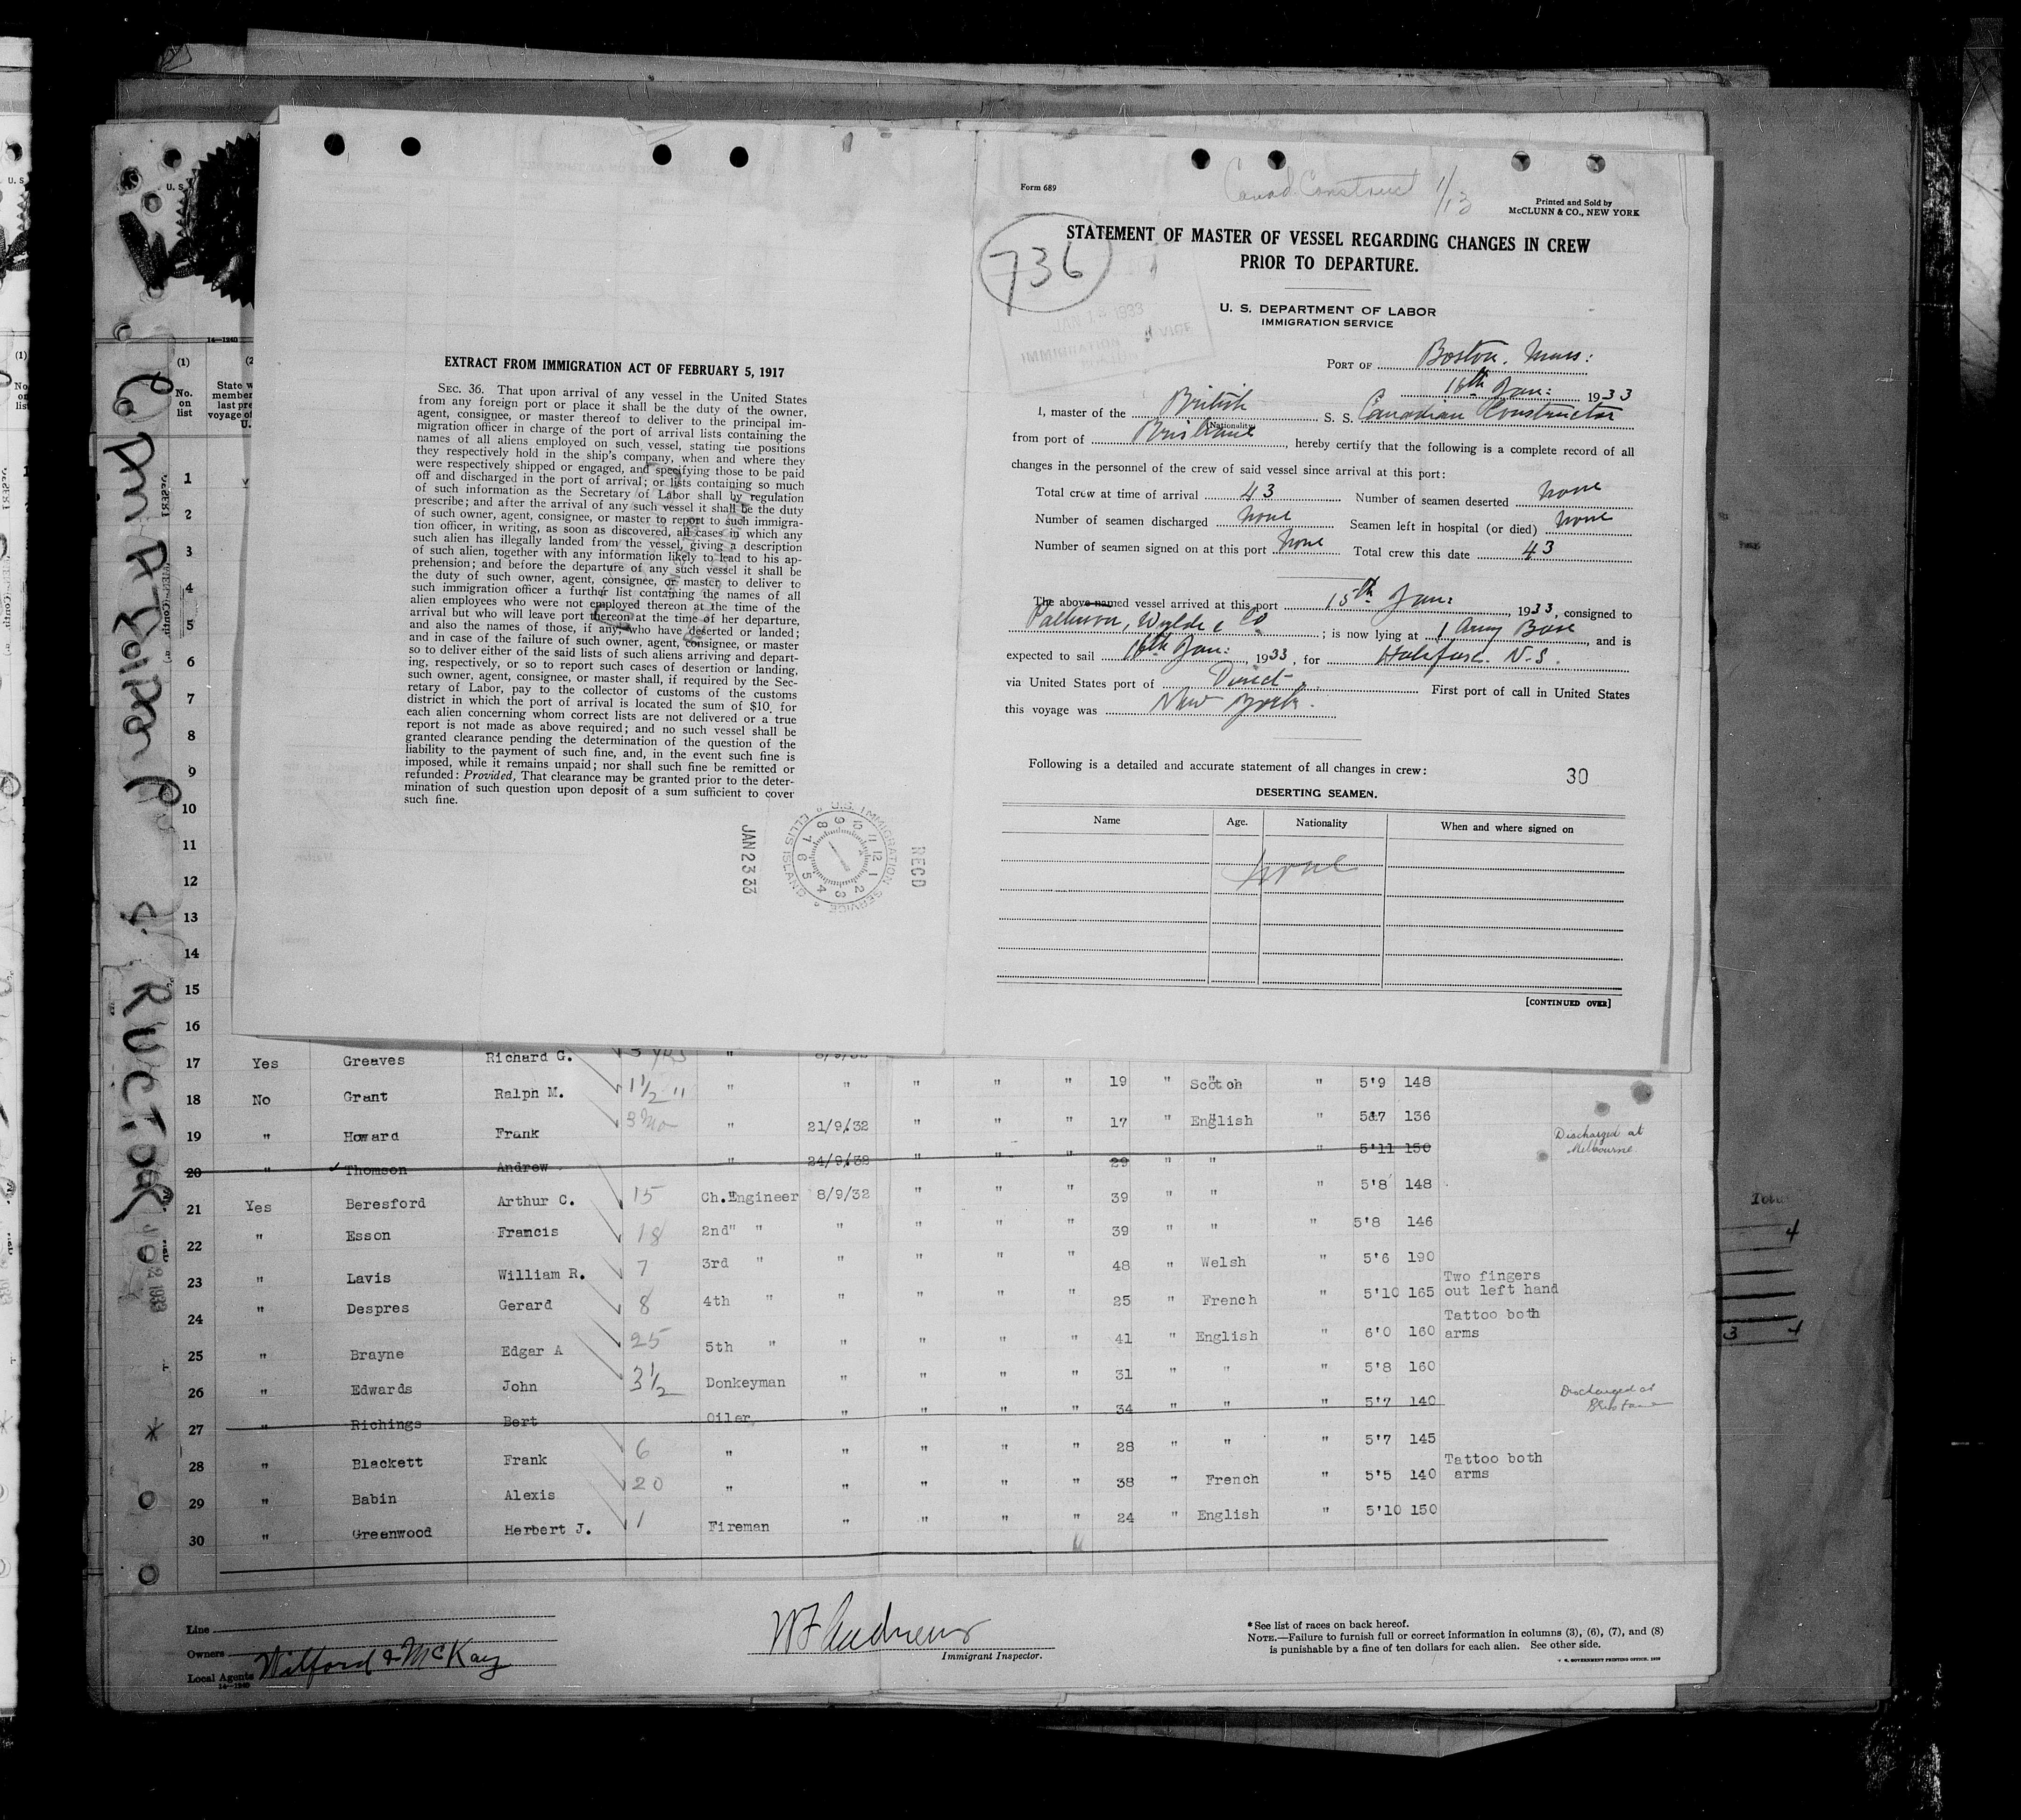 Form 689
Canad. Construct 1/13
Printed and Sold by
McCLUNN & CO., NEW YORK
736
STATEMENT OF MASTER OF VESSEL REGARDING CHANGES IN CREW
PRIOR TO DEPARTURE.
U. S. DEPARTMENT OF LABOR
IMMIGRATION SERVICE
PORT OF Boston, Mass:
16th Jan: 1933
I, master of the British S. S. Canadian Constructor
(Nationality)
from port of Brisbane, hereby certify that the following is a complete record of all
changes in the personnel of the crew of said vessel since arrival at this port:
Total crew at time of arrival 43 Number of seamen deserted none
Number of seamen discharged none Seamen left in hospital (or died) none
Number of seamen signed on at this port none Total crew this date 43
The above-named vessel arrived at this port 15th Jan: 1933, consigned to
Patterson, Wylde & Co; is now lying at Army Base, and is
expected to sail 16th Jan:, 1933, for Halifax. N.S.
via United States port of Direct. First port of call in United States
this voyage was New York.
Following is a detailed and accurate statement of all changes in crew:
30
DESERTING SEAMEN.
Name Age. Nationality When and where signed on
none
[CONTINUED OVER]
EXTRACT FROM IMMIGRATION ACT OF FEBRUARY 5, 1917
SEC. 36. That upon arrival of any vessel in the United States
from any foreign port or place it shall be the duty of the owner,
agent, consignee, or master thereof to deliver to the principal im-
migration officer in charge of the port of arrival lists containing the
names of all aliens employed on such vessel, stating the positions
they respectively hold in the ship's company, when and where they
were respectively shipped or engaged, and specifying those to be paid
off and discharged in the port of arrival; or lists containing so much
of such information as the Secretary of Labor shall by regulation
prescribe; and after the arrival of any such vessel it shall be the duty
of such owner, agent, consignee, or master to report to such immigra-
tion officer, in writing, as soon as discovered, all cases in which any
such alien has illegally landed from the vessel, giving a description
of such alien, together with any information likely to lead to his ap-
prehension; and before the departure of any such vessel it shall be
the duty of such owner, agent, consignee, or master to deliver to
such immigration officer a further list containing the names of all
alien employees who were not employed thereon at the time of the
arrival but who will leave port thereon at the time of her departure,
and also the names of those, if any, who have deserted or landed;
and in case of the failure of such owner, agent, consignee, or master
so to deliver either of the said lists of such aliens arriving and depart-
ing, respectively, or so to report such cases of desertion or landing,
such owner, agent, consignee, or master shall, if required by the Sec-
retary of Labor, pay to the collector of customs of the customs
district in which the port of arrival is located the sum of $10 for
each alien concerning whom correct lists are not delivered or a true
report is not made as above required; and no such vessel shall be
granted clearance pending the determination of the question of the
liability to the payment of such fine, and, in the event such fine is
imposed, while it remains unpaid; nor shall such fine be remitted or
refunded: Provided, That clearance may be granted prior to the deter-
mination of such question upon deposit of a sum sufficient to cover
such fine.
JAN 23 33
U.S. IMMIGRATION SERVICE
ELLIS ISLAND
RECD
(1)
No.
on
list
1
2
3
4
5
6
7
8
9
10
11
12
13
14
15
16
17 Yes Greaves Richard G. 3 yrs "
18 No Grant Ralph M. 1 1/2 " " " " " " 19 " Scotch " 5'9 148
19 " Howard Frank 3 Mo " 21/9/32 " " " 17 " English " 5'7 136
20 " Thomson Andrew " 24/9/32 " " " 29 " " " 5'11 150 Discharged at Melbourne
21 Yes Beresford Arthur C. 15 Ch.Engineer 8/9/32 " " " 39 " " " 5'8 148
22 " Esson Francis 18 2nd" " " " " " 39 " " " 5'8 146
23 " Lavis William R. 7 3rd " " " " " 48 " Welsh " 5'6 190
24 " Despres Gerard 8 4th " " " " " 25 " French " 5'10 165 Two fingers out left hand
25 " Brayne Edgar A 25 5th " " " " " 41 " English " 6'0 160 Tattoo both arms
26 " Edwards John 3 1/2 Donkeyman " " " " 31 " " " 5'8 160
27 " Richings Bert Oiler " " " " 34 " " " 5'7 140 Discharged at Brisbane
28 " Blackett Frank 6 " " " " " 28 " " " 5'7 145
29 " Babin Alexis 20 " " " " " 38 " French " 5'5 140 Tattoo both arms
30 " Greenwood Herbert J. 1 Fireman " " " " 24 " English " 5'10 150
Line
Owners
Local Agents Wilford & McKay
14—1240
W F Andrews
Immigrant Inspector.
*See list of races on back hereof.
NOTE.—Failure to furnish full or correct information in columns (3), (6), (7), and (8)
is punishable by a fine of ten dollars for each alien. See other side.